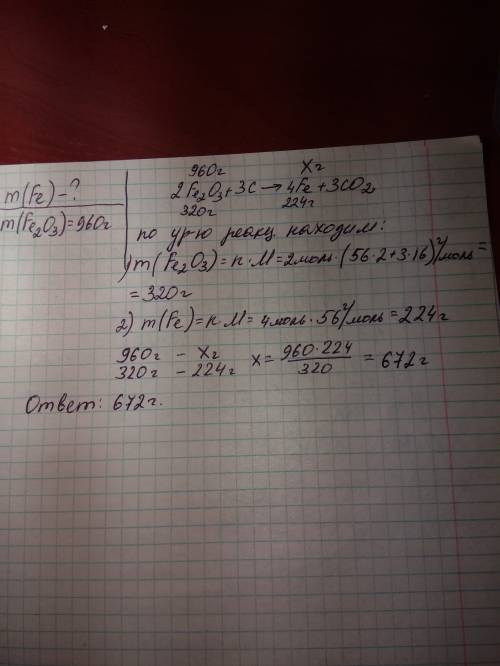 m(Fe)-?
m(Fe₂O₃)=960г
960г Xг
2Fe₂O₃+3C→4Fe+3CO₂
320г 224г
по ур-ю реакц. находим:
1) m(Fe₂O₃)=n·M=2моль·(56·2+3·16)г/моль=
=320г
2) m(Fe)=n·M=4моль·56г/моль=224г
960г - Xг
320г - 224г
X=960·224/320=672г
Ответ: 672г.